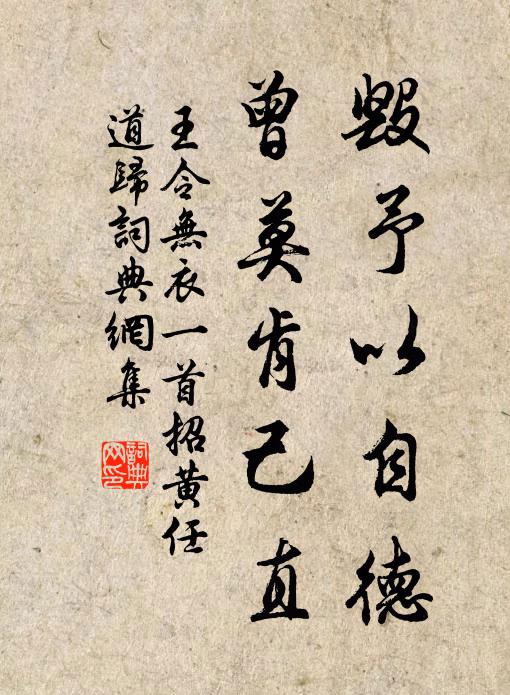 毀予以自德
曾莫肯己直
王令無衣一首招黃任
道歸詞典網集
詞典
网印